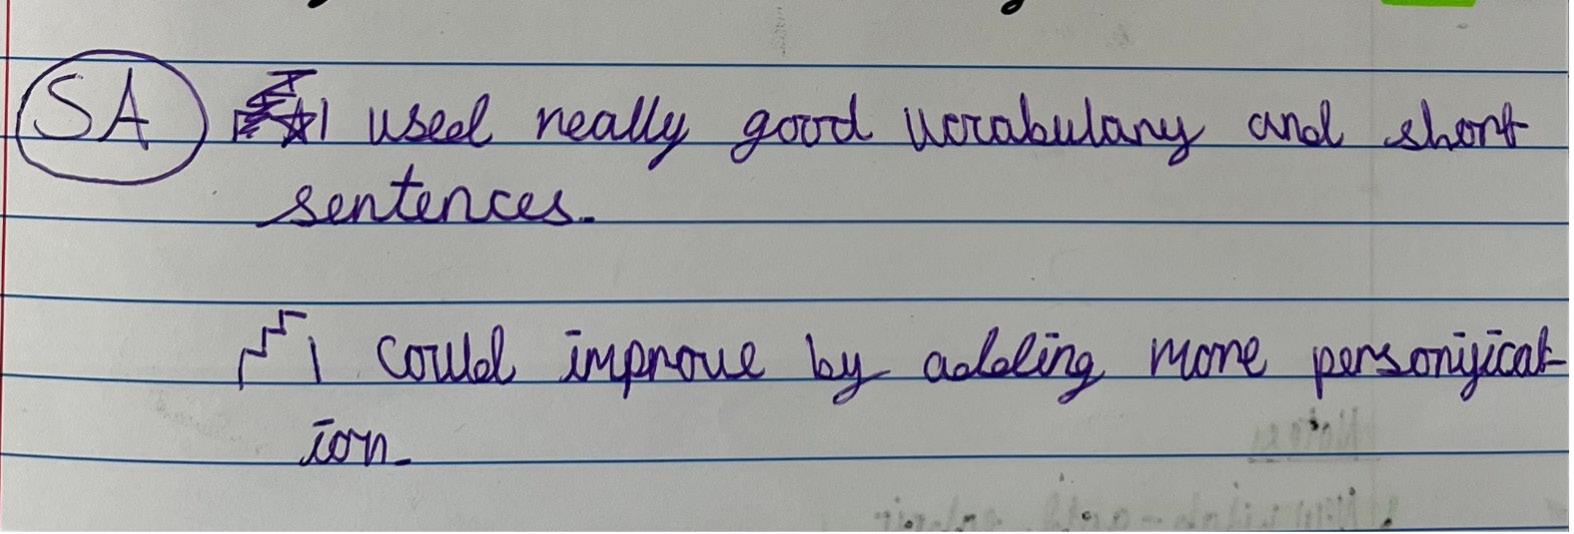 SA I used really good vocabulary and short
sentences.
I could improve by adding more personificat-
ion.